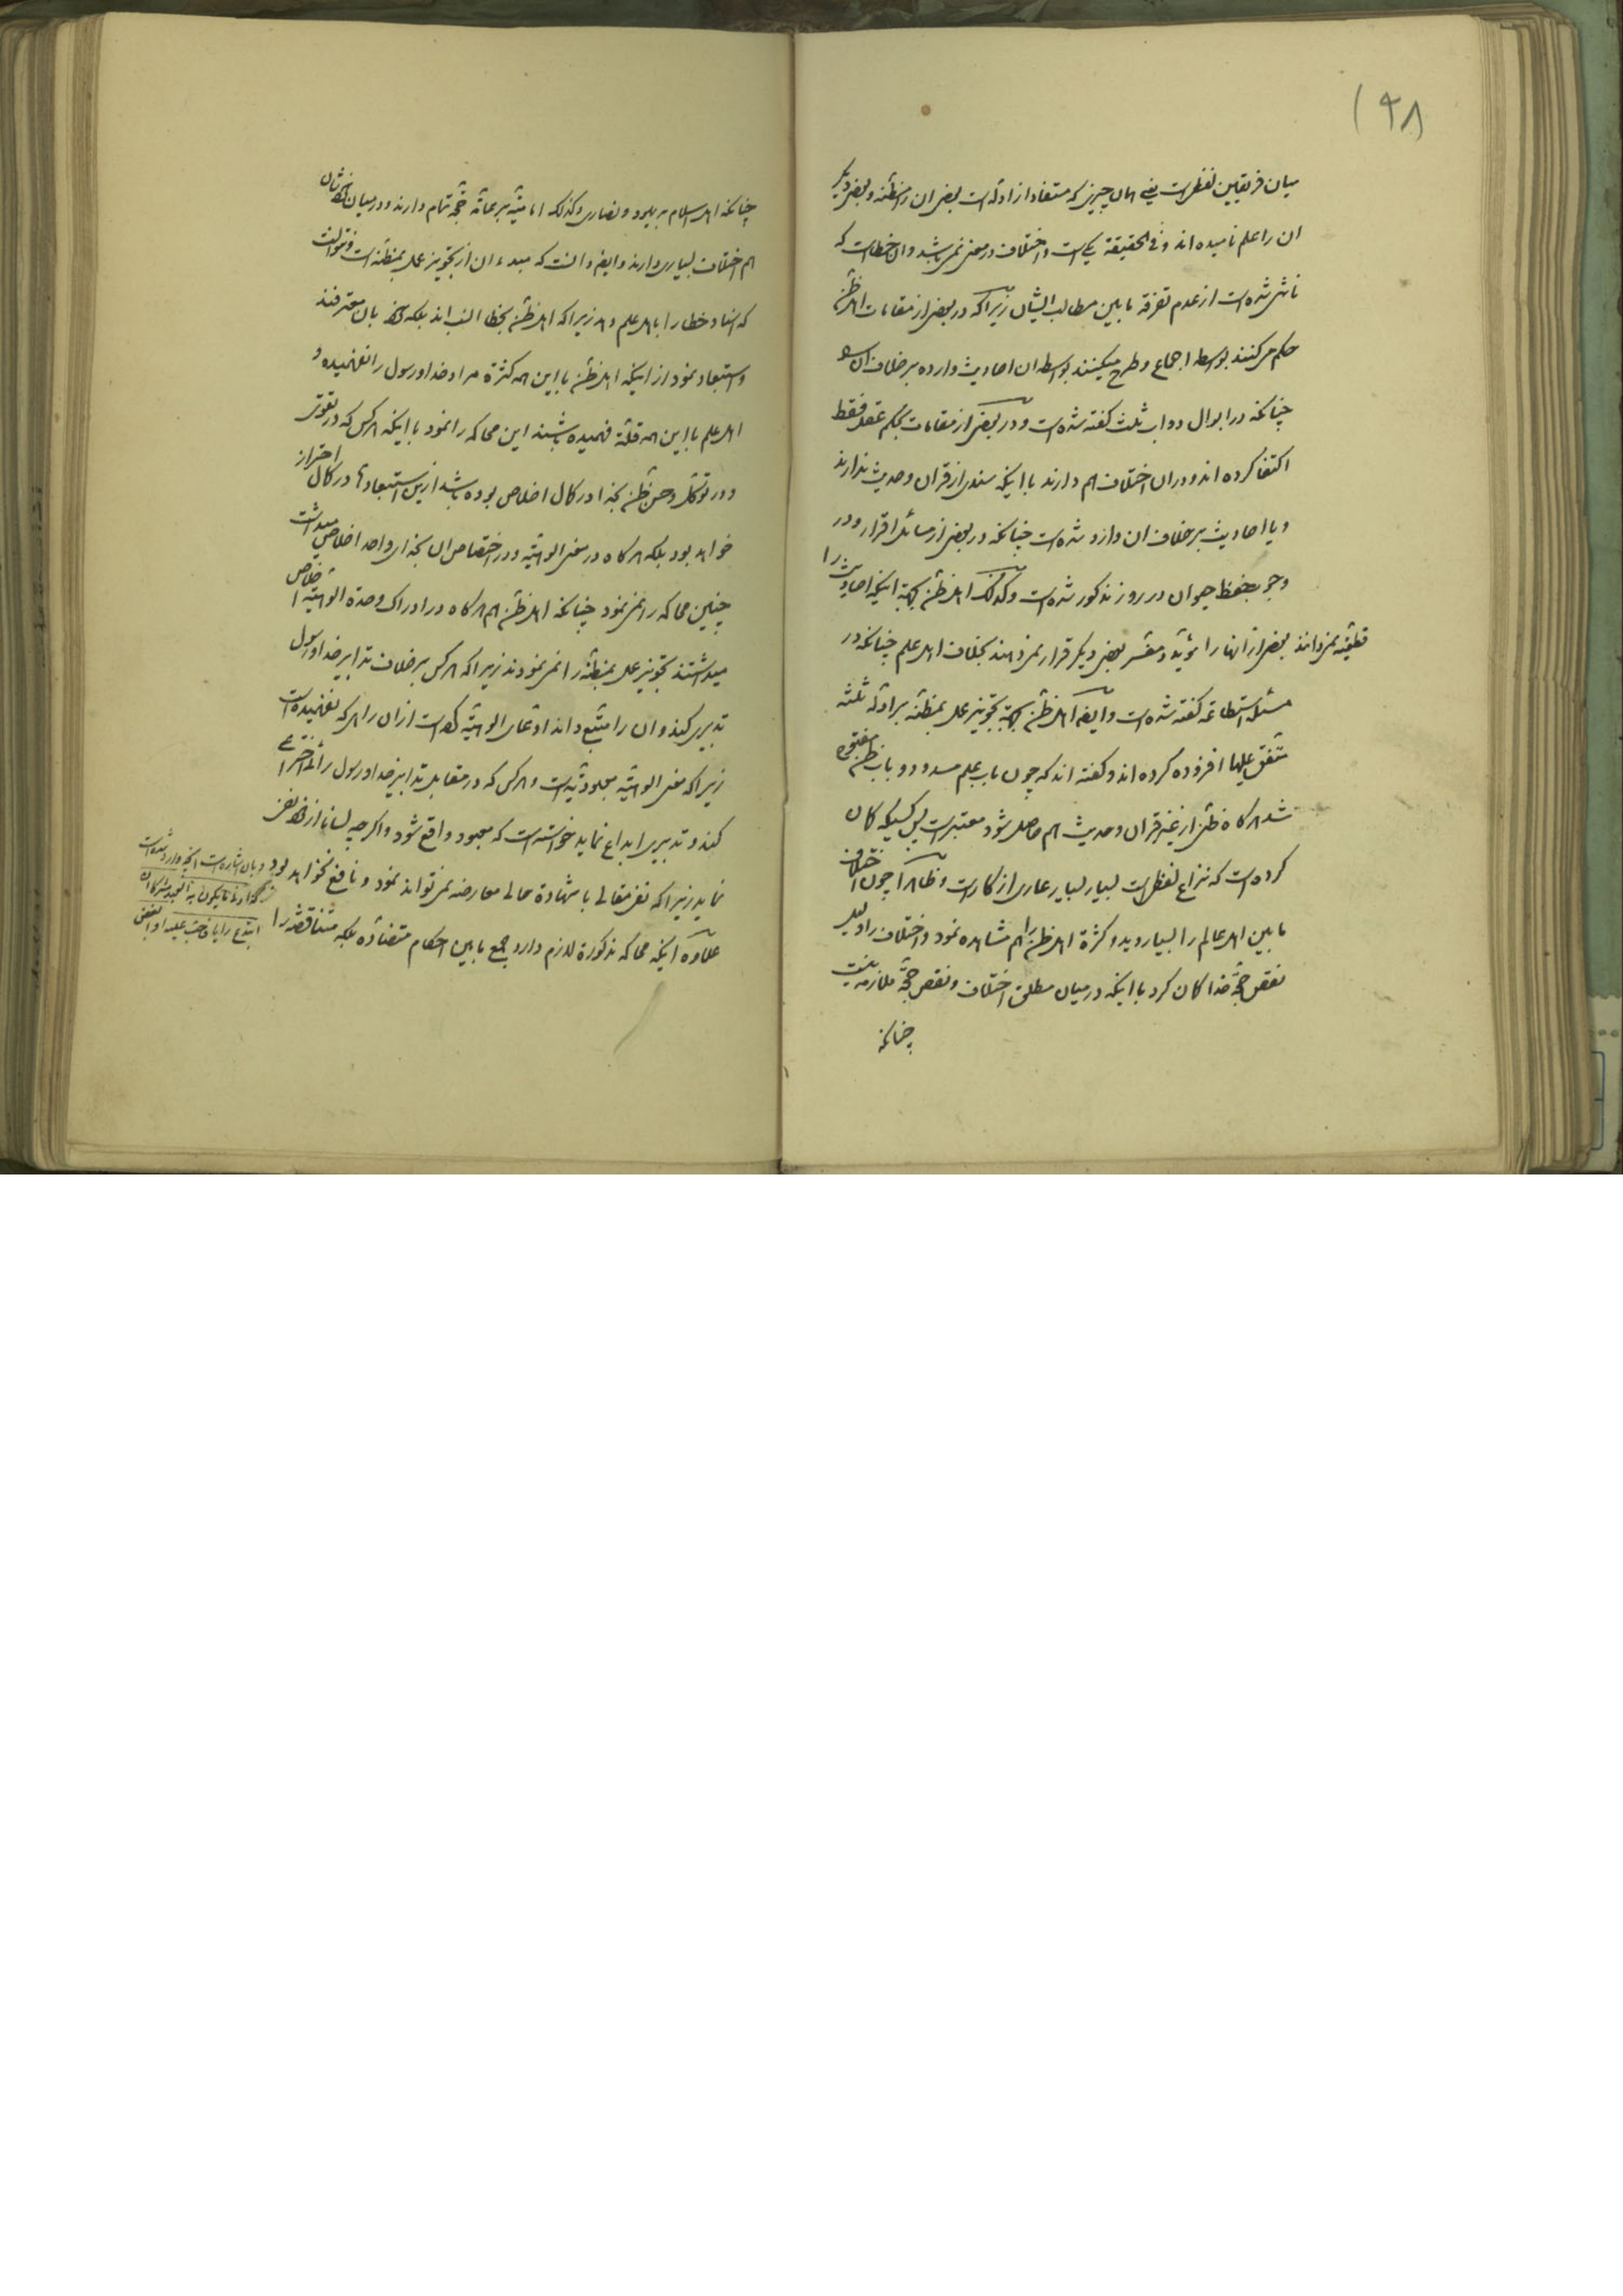 ۱۹۸
میان فریقین لفظیست یعنی همان چیزی که مستفاد از ادله است بعضی ان را مظنه و بعضی دیگر
ان را علم نامیده اند و فی الحقیقة یکی است و اختلاف در معنی نمی باشد و ان خطاست که
ناشی شده است از عدم تفرقه مابین مطالب ایشان زیرا که در بعضی از مقامات اهل ظن
حکم می کنند بواسطه اجماع و طرح میکنند بواسطه ان احادیث وارده بر خلاف ان را
چنانکه در ابوال دواب ثلث گفته شده است و در بعضی از مقامات بحکم عقل فقط
اکتفا کرده اند و در ان اختلاف هم دارند با اینکه سندی از قران و حدیث ندارند
و یا احادیث بر خلاف ان وارد شده است چنانکه در بعضی از مسائل اقرار و در
وجوب حفظ حیوان در روز مذکور شده است و کذلک اهل ظن بجهة اینکه احادیث را
قطعیه نمیدانند بعضی از انها را مؤید و مفسر بعضی دیگر قرار نمیدهند بخلاف اهل علم چنانکه در
مسئله استطاعة گفته شده است و ایضا اهل ظن بجهة تجویز عمل بمظنه بر ادله ثلثه
متفق علیها افزوده کرده اند و گفته اند که چون باب علم مسدود و باب ظن مفتوح
شد هرگاه ظن از غیر قران و حدیث هم حاصل شود معتبر است پس کسیکه گمان
کرده است که نزاع لفظیست بسیار بسیار عاری از کار است و ظاهرا چون اختلاف
مابین اهل عالم را بسیار دید و کثرة اهل ظن را هم مشاهده نمود و اختلاف را دلیل
نقص حجة خدا گمان کرد با اینکه در میان مطلق اختلاف و نقص حجة ملازمه نیست
چنانکه
چنانکه اهل اسلام بر یهود و نصاری و کذلک امامیه بر عامه حجة تمام دارند و در میان خودشان
هم اختلاف بسیاری دارند و ایضا دانست که مبدء ان از تجویز عمل بمظنه است و نتوانست
که اسناد خطا را باهل علم دهد زیرا که اهل ظن بخطا انسب اند بلکه خود بان معترفند
و استبعاد نمود از اینکه اهل ظن با این همه کثرة مراد خدا و رسول را نفهمیده و
اهل علم با این همه قلة فهمیده باشند این محاکمه را نمود با اینکه هر کس که در تقوی
و در توکل و حسن ظن بخدا در کمال اخلاص بوده باشد از این استبعادها در کمال احتراز
خواهد بود بلکه هرگاه در معنی الوهیة و در اختصاص ان بخدای واحد اخلاص میداشت
چنین محاکمه را نمی نمود چنانکه اهل ظن هم هرگاه در ادراک وحدة الوهیة اخلاص
میداشتند تجویز عمل بمظنه را نمی نمودند زیرا که هر کس بر خلاف تدابیر خدا و رسول
تدبیری کند و ان را متبع داند ادعای الوهیة کرده است از ان راهی که نفهمیده است
زیرا که معنی الوهیة معبودیة است و هر کس که در مقابل تدابیر خدا و رسول رائی اختراع
کند و تدبیری ابداع نماید خواسته است که معبود واقع شود و اگرچه لسانا از خود نفی
نماید زیرا که نفی مقالی با شهادة حالی معارضه نمی تواند نمود و نافع نخواهد بود
علاوه اینکه محاکمه مذکورة لازم دارد جمع مابین احکام متضاده بلکه متناقضه را
و بان اشاره است انچه وارد شده است
ادنی ما یکون به العبد مشرکا ان
ابتدع رایا فاحب علیه او ابغض